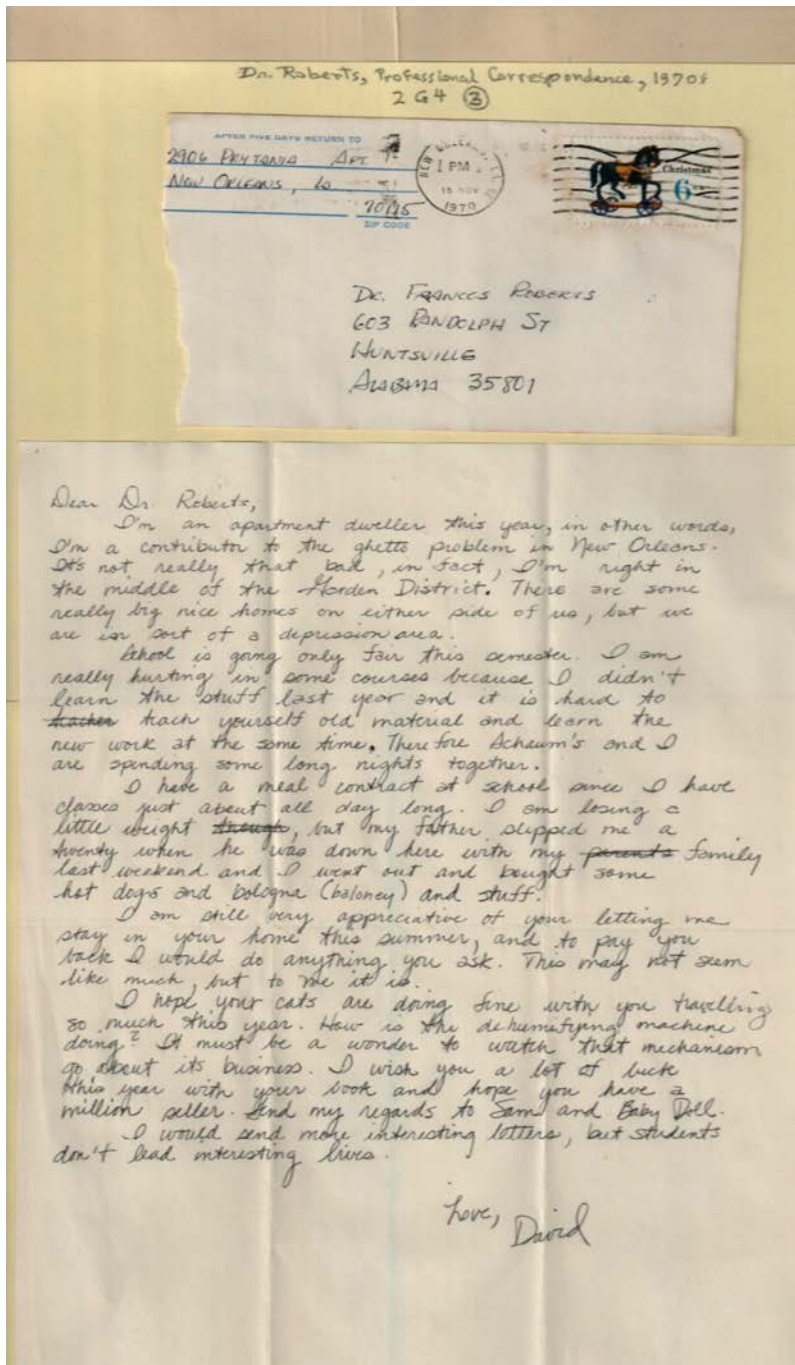 Dr. Roberts, Professional Correspondence, 1970s
2G4 ③
AFTER FIVE DAYS RETURN TO
2906 PRYTANIA APT
NEW ORLEANS, LA
70115
ZIP CODE
NEW ORLEANS, LA
1 PM
15 NOV
1970
Christmas
6
DR. FRANCES ROBERTS
603 RANDOLPH ST
HUNTSVILLE
ALABAMA 35801
Dear Dr. Roberts,
I'm an apartment dweller this year, in other words,
I'm a contributor to the ghetto problem in New Orleans.
It's not really that bad, in fact, I'm right in
the middle of the Garden District. There are some
really big nice homes on either side of us, but we
are in sort of a depression area.
School is going only fair this semester. I am
really hurting in some courses because I didn't
learn the stuff last year and it is hard to
teacher teach yourself old material and learn the
new work at the same time. Therefore Schaum's and I
are spending some long nights together.
I have a meal contract at school since I have
classes just about all day long. I am losing a
little weight though, but my father slipped me a
twenty when he was down here with my parents family
last weekend and I went out and bought some
hot dogs and bologna (baloney) and stuff.
I am still very appreciative of your letting me
stay in your home this summer, and to pay you
back I would do anything you ask. This may not seem
like much, but to me it is.
I hope your cats are doing fine with you travelling
so much this year. How is the dehumifying machine
doing? It must be a wonder to watch that mechanism
go about its business. I wish you a lot of luck
this year with your book and hope you have a
million seller. Send my regards to Sam and Baby Doll.
I would send more interesting letters, but students
don't lead interesting lives.
Love,
David